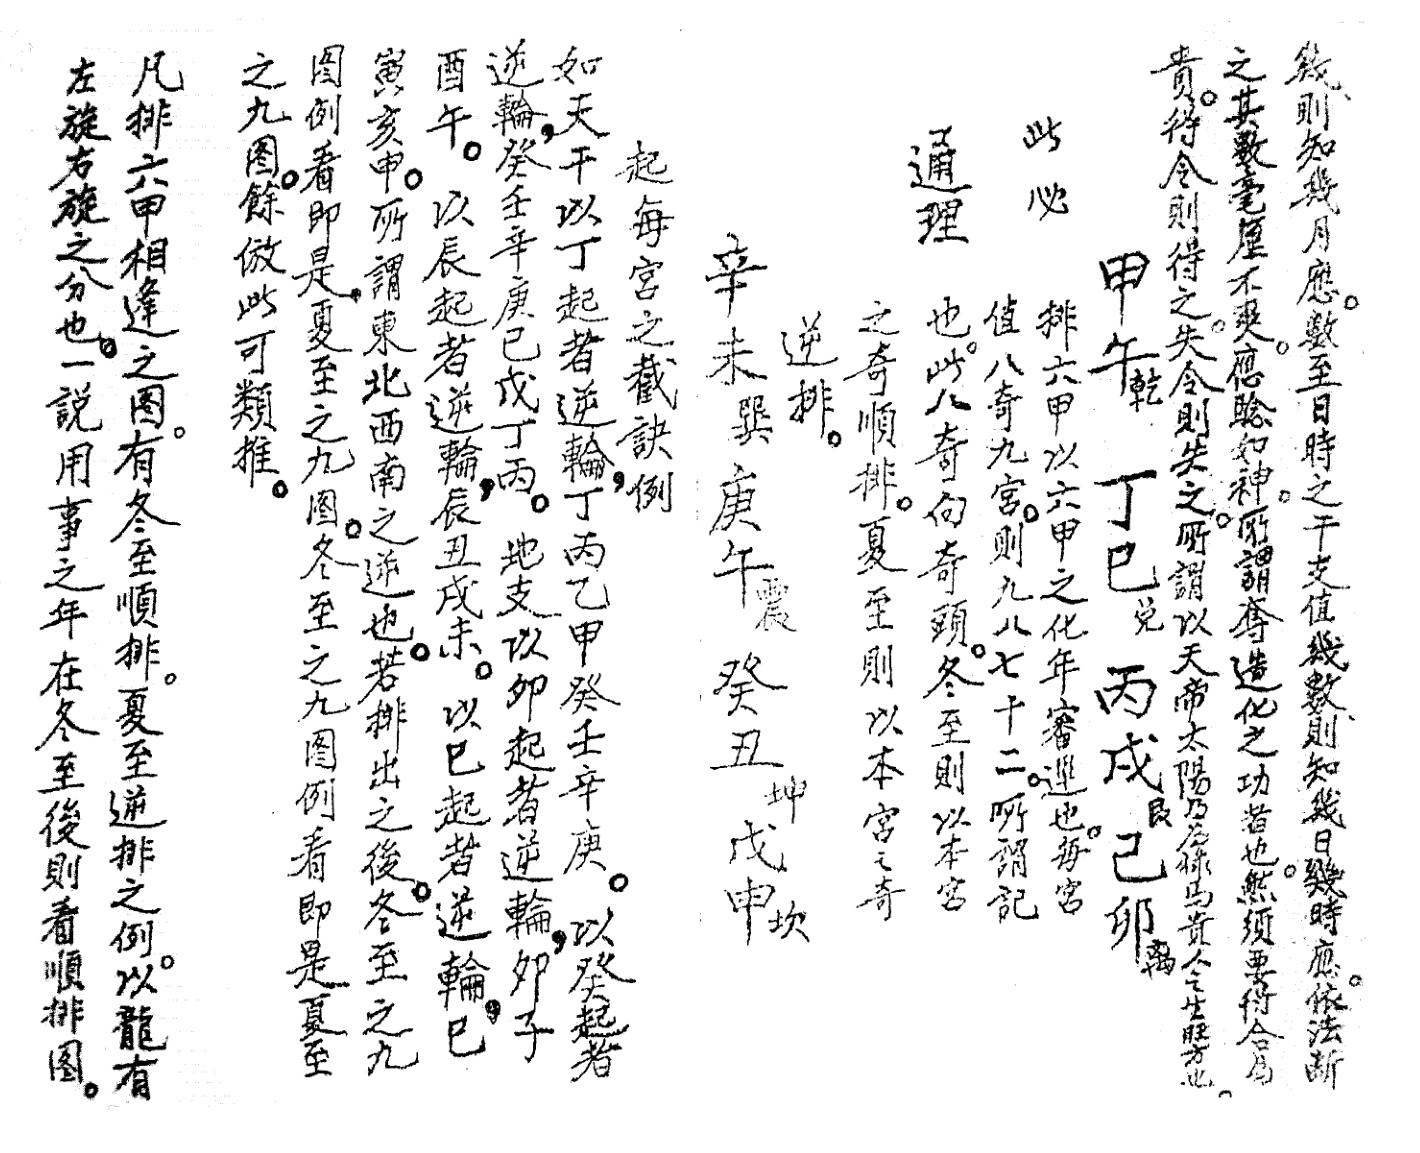 幾則知幾月應。數至日時之干支值幾數、則知幾日幾時應。依法斷
之其數毫厘不爽。應騐如神。所謂奪造化之功者也。然須要得合局
貴。得令則得之。失令則失之。所謂以天帝太陽乃為祿馬貴人之生旺方也。
甲午乾 丁巳兌 丙戌艮 己卯离
此必
排六甲以六甲之化年審巡也。每宮
值八奇九宮。則九八七十二。所謂記
也。此八奇向奇頭。冬至則以本宮
之奇順排。夏至則以本宮之奇
通理
逆排。
辛未巽 庚午震 癸丑坤 戊申坎
起每宮之截訣例
如天干以丁起者逆輪，丁丙乙甲癸壬辛庚。以癸起者
逆輪，癸壬辛庚己戊丁丙。地支以卯起者逆輪，卯子
酉午。以辰起者逆輪，辰丑戌未。以巳起者逆輪，巳
寅亥申。所謂東北西南之逆也。若排出之後。冬至之九
图例看即是。夏至之九图。冬至之九图例看即是夏至
之九图。餘倣此可類推。
凡排六甲相逢之图。有冬至順排。夏至逆排之例。以龍有
左旋右旋之分也。一説用事之年在冬至後則看順排图。